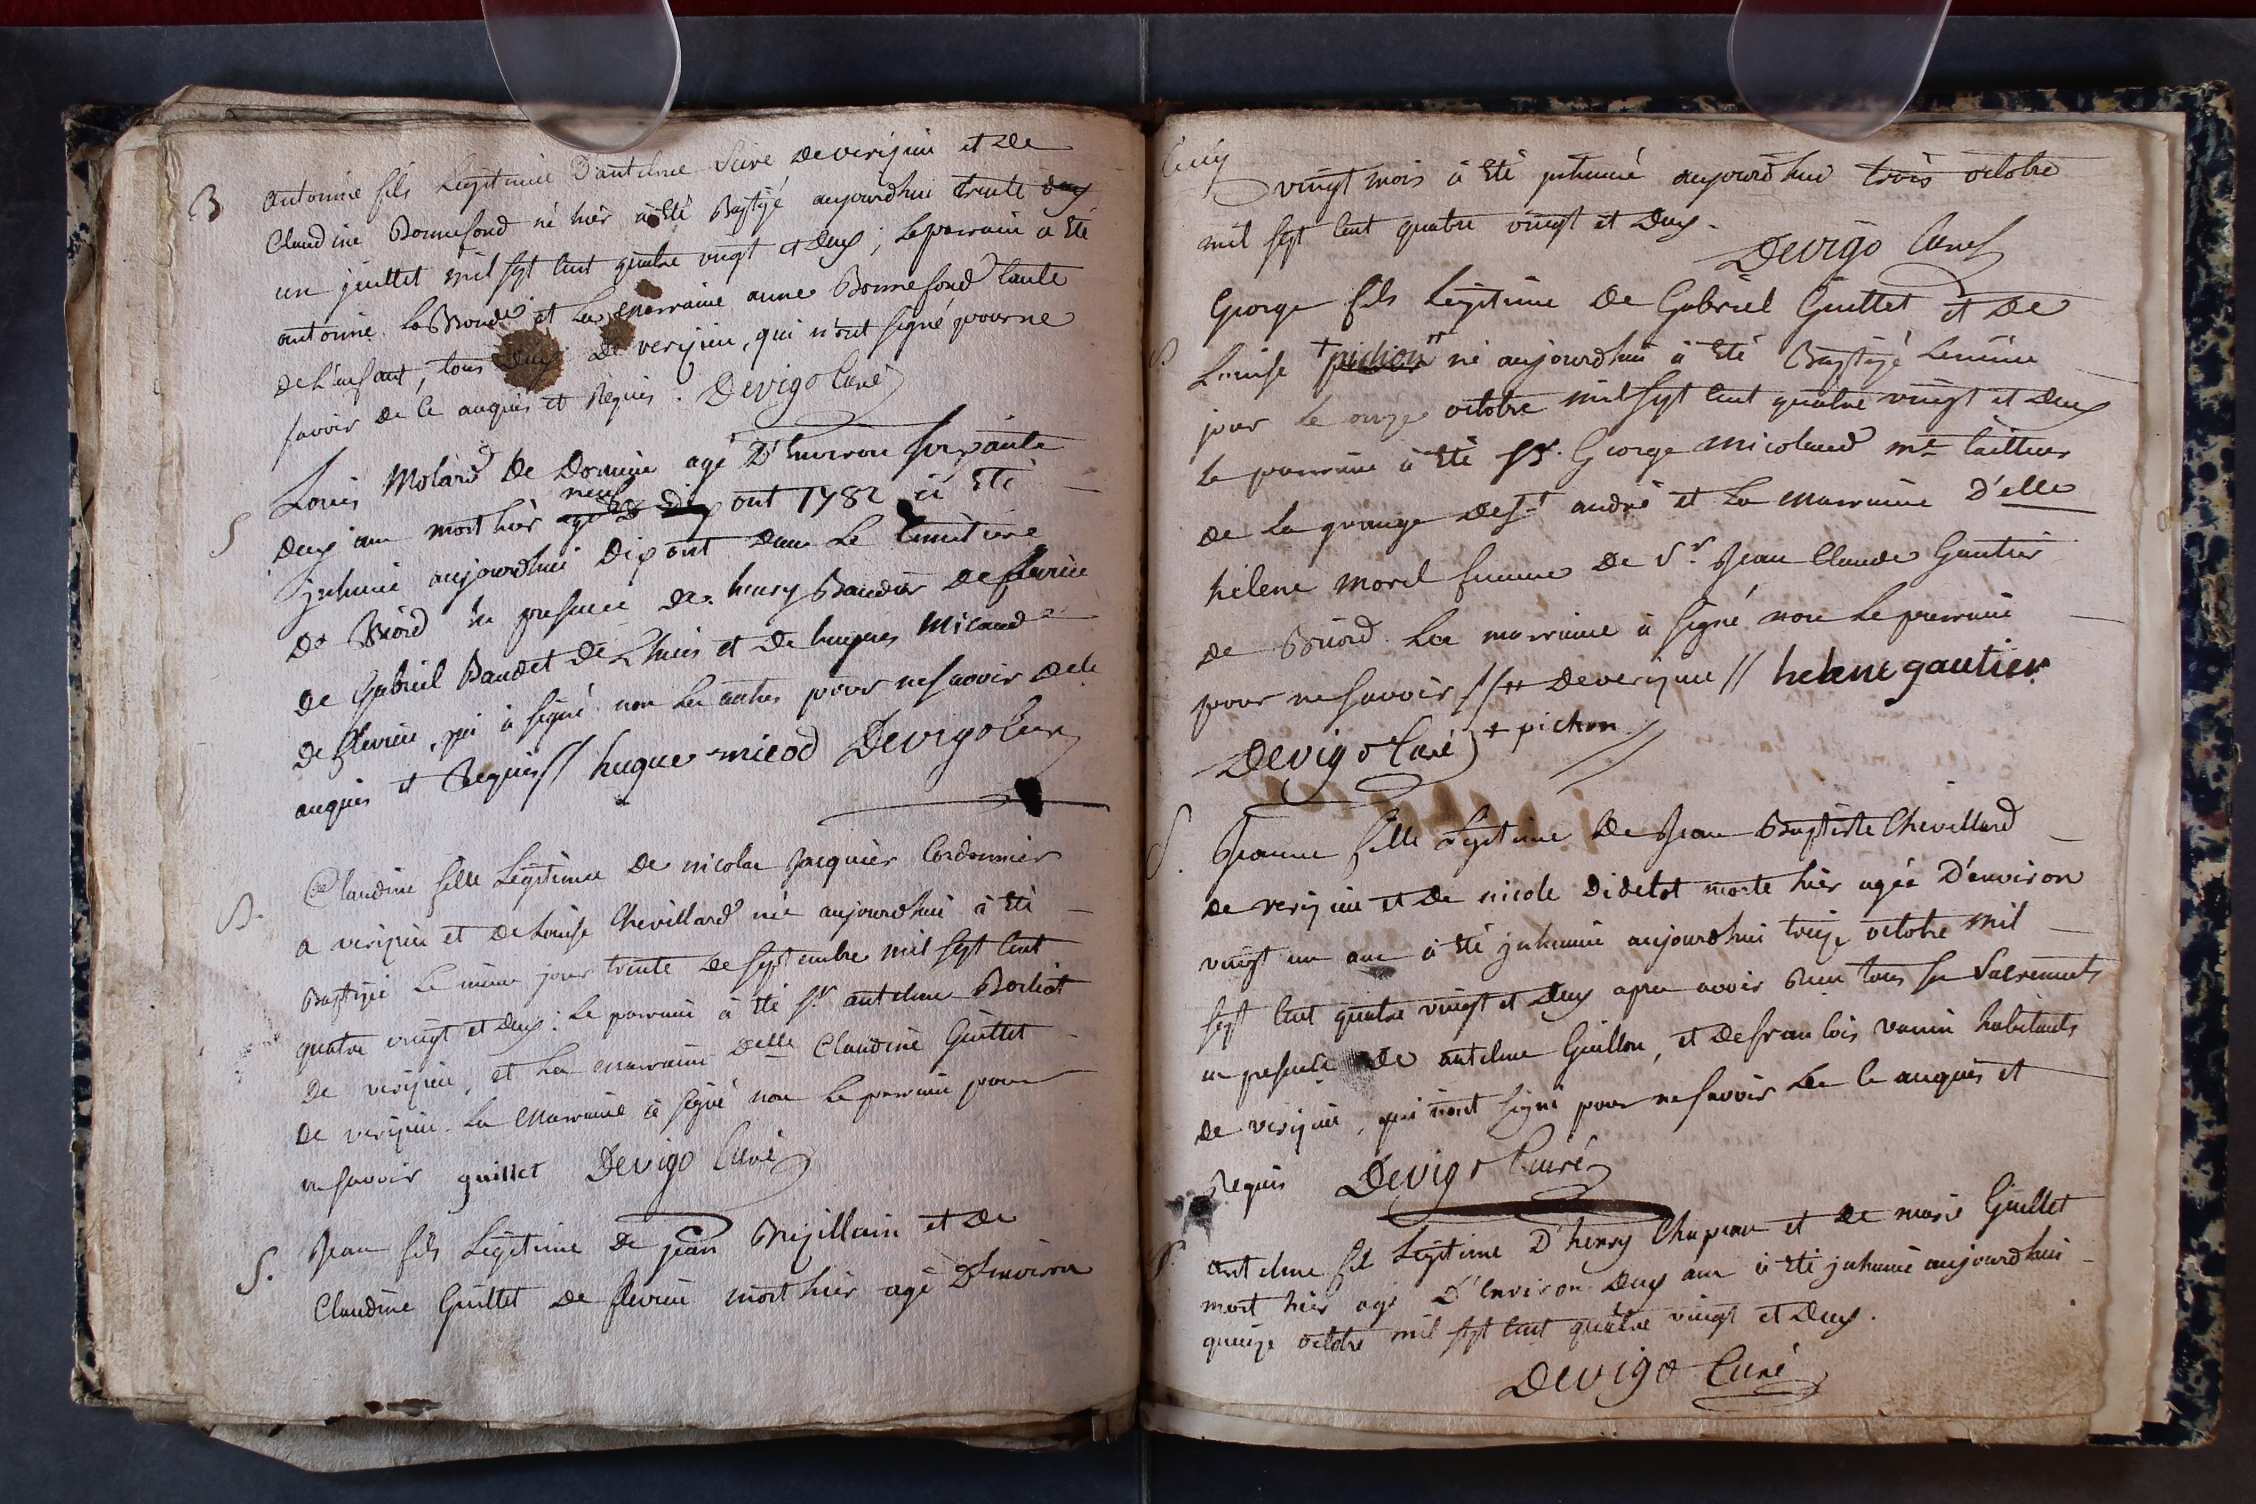 B
antoinie fils Legitimie D'antelme Sure de verizieu et de
Claudine Bonnefond né hier a été Baptizé aujourdhui trente
un juillet mil sept Cent quatre vingt et deux ; Le parrain a été
antoine et La marraine anne Bonnefond tante
de L'enfant, tous deux de verizieu, qui n'ont signé pour ne
savoir de Ce anquis et Requis. Devigo Curé
S
Louis Molard de agé D'Environ soixante
deux ans mort hier neuf aout 1782 a été
inhumé aujourdhui dix aout dans Le Cimetiere
De Briord en presence de henry Baudin de flevieu
de Gabriel Baudet de L'huis et de hugues Micaud
de flevieu, qui a signé non Les autres pour ne savoir de Ce
anquis et Requis // hugue micod Devigo Curé
B.
Claudine fille Legitime de nicolas jacquier Cordonnier
a verizieu et de Louise Chevillard née aujourdhui a été
Baptizée Le même jour trente de septembre mil sept Cent
quatre vingt et deux : Le parrain a été Sr antelme Borliat
De verizieu, et La marraine Delle Claudine Guillet
de verizieu. La Marraine a signé non Le parrain pour
ne savoir guillet Devigo Curé
S.
Jean fils Legitime de jean Brizillain et de
Claudine Guillet de flevieu mort hier agé D'Environ
vingt mois a été inhumé aujourdhui trois octobre
mil sept Cent quatre vingt et deux.
Devigo Curé
George fils Legitime De Gabriel Guillet et de
Louise + pichon ++ né aujourdhui a été Baptizé Le même
jour Le onze octobre mil sept Cent quatre vingt et deux
Le parrain a été Sr. George micoleaud me tailleur
de La grange de St andré et La Marraine D'elle
hélene morel femme De Sr. Jean Claude Gautier
de Briord. La marraine a signé non Le parrain
pour ne savoir // ++ de verizieu // helene gautier
Devigo Curé + pichon //
S.
Jeanne fille Legitime de Jean Baptiste Chevillard
de verizieu et de nicole Didelot morte hier agée D'environ
vingt un ans a été inhumée aujourdhui treize octobre mil
sept Cent quatre vingt et deux apres avoir Reçu tous ses Sacrements
en presence de antelme Guillon, et de francois vanin habitants
de verizieu, qui n'ont signé pour ne savoir de Ce anquis et
Requis Devigo Curé
S.
antelme fils Legitime D'henry Chapeau et de marie Guillet
mort hier agé D'Environ deux ans a été inhumé aujourdhui
quinze octobre mil sept Cent quatre vingt et deux.
Devigo Curé